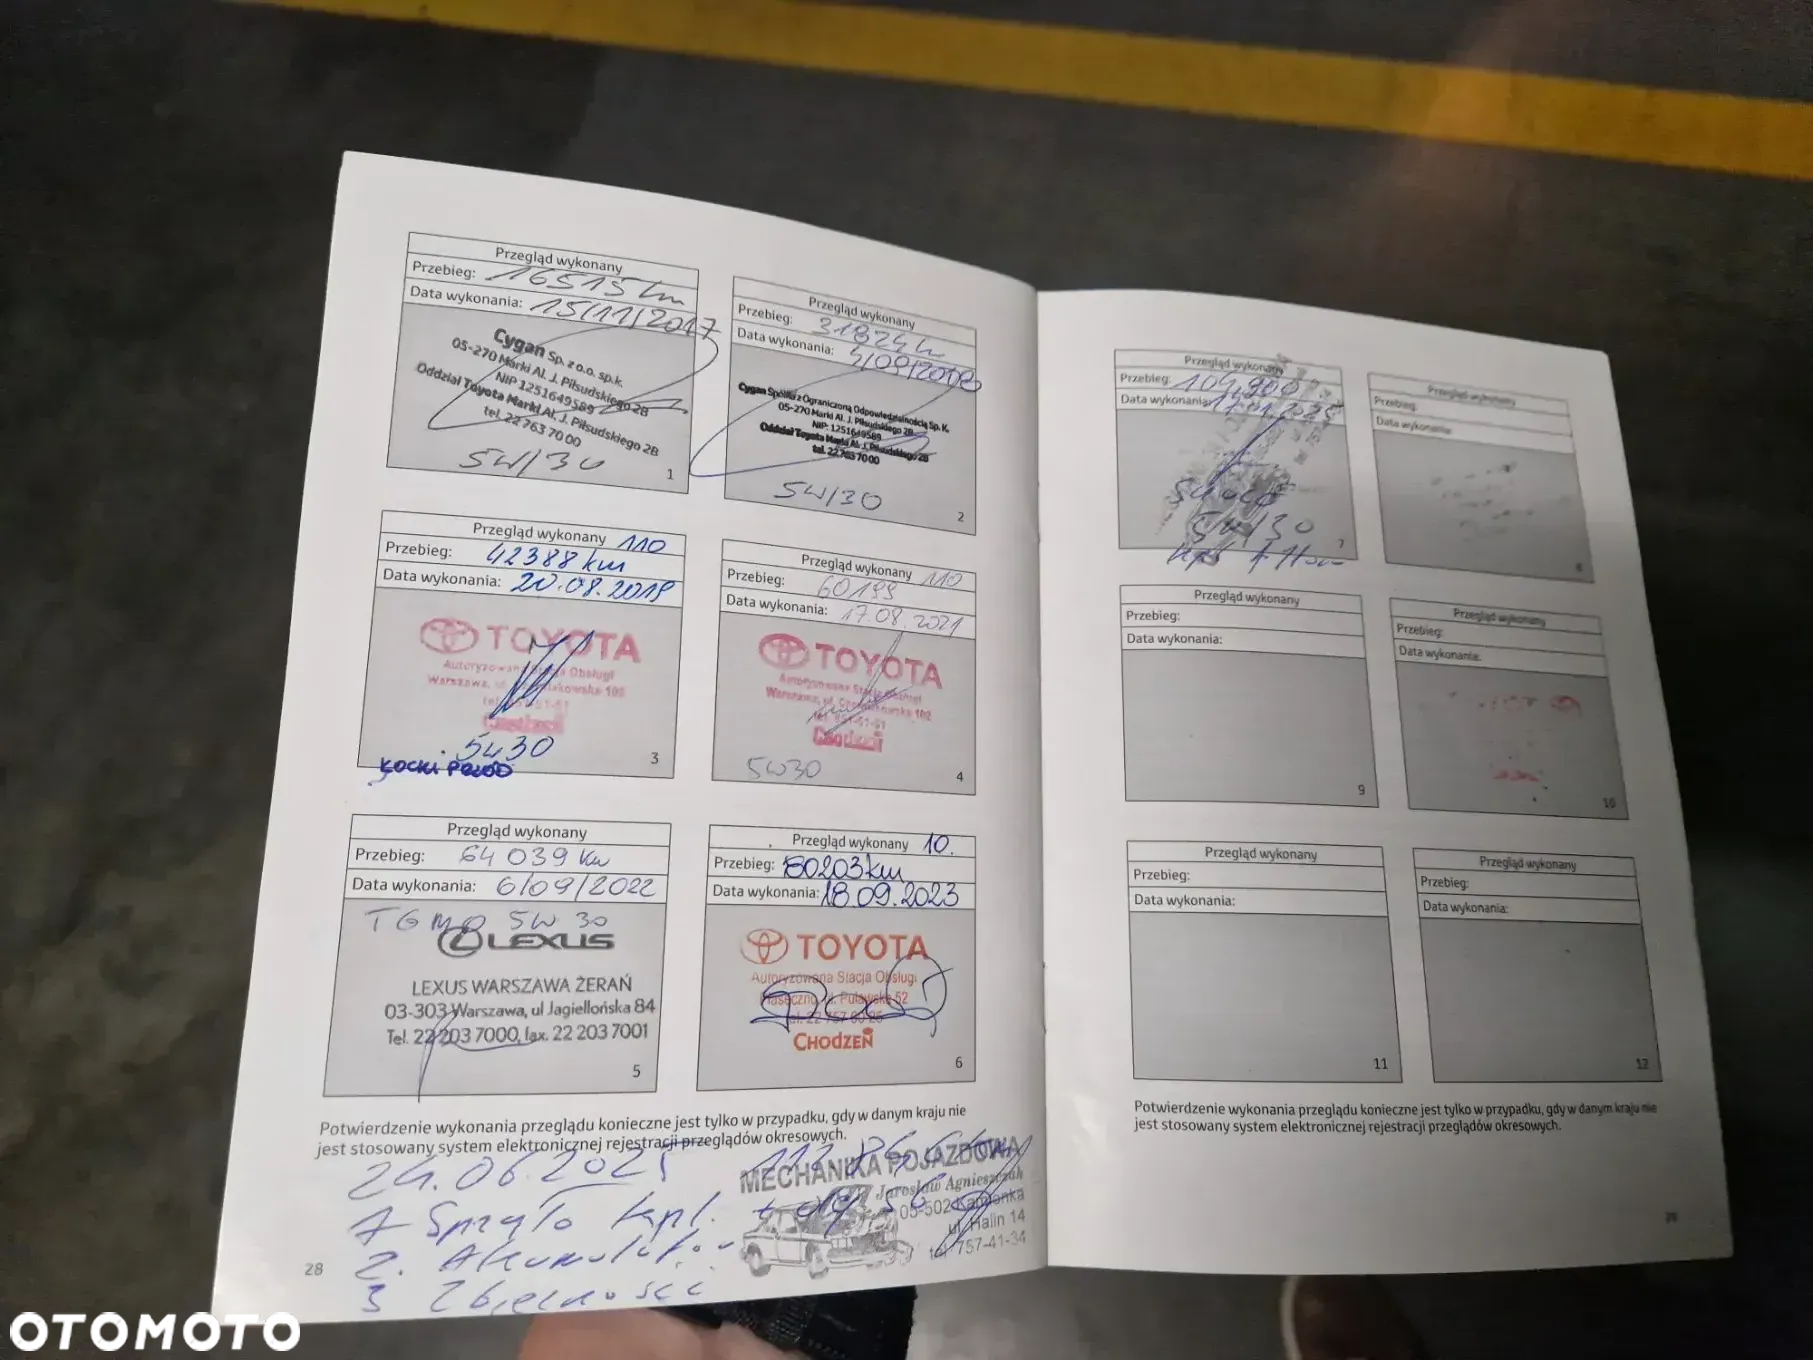 Przegląd wykonany
Przebieg: 16515 km
Data wykonania: 15/11/2017
Cygan Sp. z o.o. sp.k.
05-270 Marki Al. J. Piłsudskiego 2B
NIP 1251649589
Oddział Toyota Marki Al. J. Piłsudskiego 2B
tel. 22 763 70 00
5W/30
1
Przegląd wykonany
Przebieg: 31824
Data wykonania:
Cygan Spółka z Ograniczoną Odpowiedzialnością Sp. K.
05-270 Marki Al. J. Piłsudskiego 2B
NIP: 1251649589
Oddział Toyota Marki Al. J. Piłsudskiego 2B
tel. 22 763 70 00
5W/30
2
Przegląd wykonany 110
Przebieg: 42388 km
Data wykonania: 20.08.2019
TOYOTA
Autoryzowana Stacja Obsługi
Warszawa, ul.
5W30
3
Przegląd wykonany 110
Przebieg: 60199
Data wykonania: 17.08.2021
TOYOTA
Autoryzowana Stacja Obsługi
Warszawa, ul.
Chodzeń
5W30
4
Przegląd wykonany
Przebieg: 64 039 km
Data wykonania: 6/09/2022
TGMO 5W 30
LEXUS
LEXUS WARSZAWA ŻERAŃ
03-303 Warszawa, ul Jagiellońska 84
Tel. 22 203 7000, fax. 22 203 7001
5
Przegląd wykonany 10.
Przebieg: 80203 km
Data wykonania: 18.09.2023
TOYOTA
Autoryzowana Stacja Obsługi
Piaseczno, ul. Puławska 52
CHODZEŃ
6
Potwierdzenie wykonania przeglądu konieczne jest tylko w przypadku, gdy w danym kraju nie
jest stosowany system elektronicznej rejestracji przeglądów okresowych.
24.06.2025
MECHANIKA POJAZDOWA
Jarosław Agnieszczak
05-502
ul. Malin 14
tel. 757-41-34
2. Akumulator
3 Zbieżność
28
Przegląd wykonany
Przebieg: 104,900
Data wykonania: 17.01.2025
5W/30
7
Przegląd wykonany
Przebieg:
Data wykonania:
8
Przegląd wykonany
Przebieg:
Data wykonania:
9
Przegląd wykonany
Przebieg:
Data wykonania:
10
Przegląd wykonany
Przebieg:
Data wykonania:
11
Przegląd wykonany
Przebieg:
Data wykonania:
12
Potwierdzenie wykonania przeglądu konieczne jest tylko w przypadku, gdy w danym kraju nie
jest stosowany system elektronicznej rejestracji przeglądów okresowych.
OTOMOTO